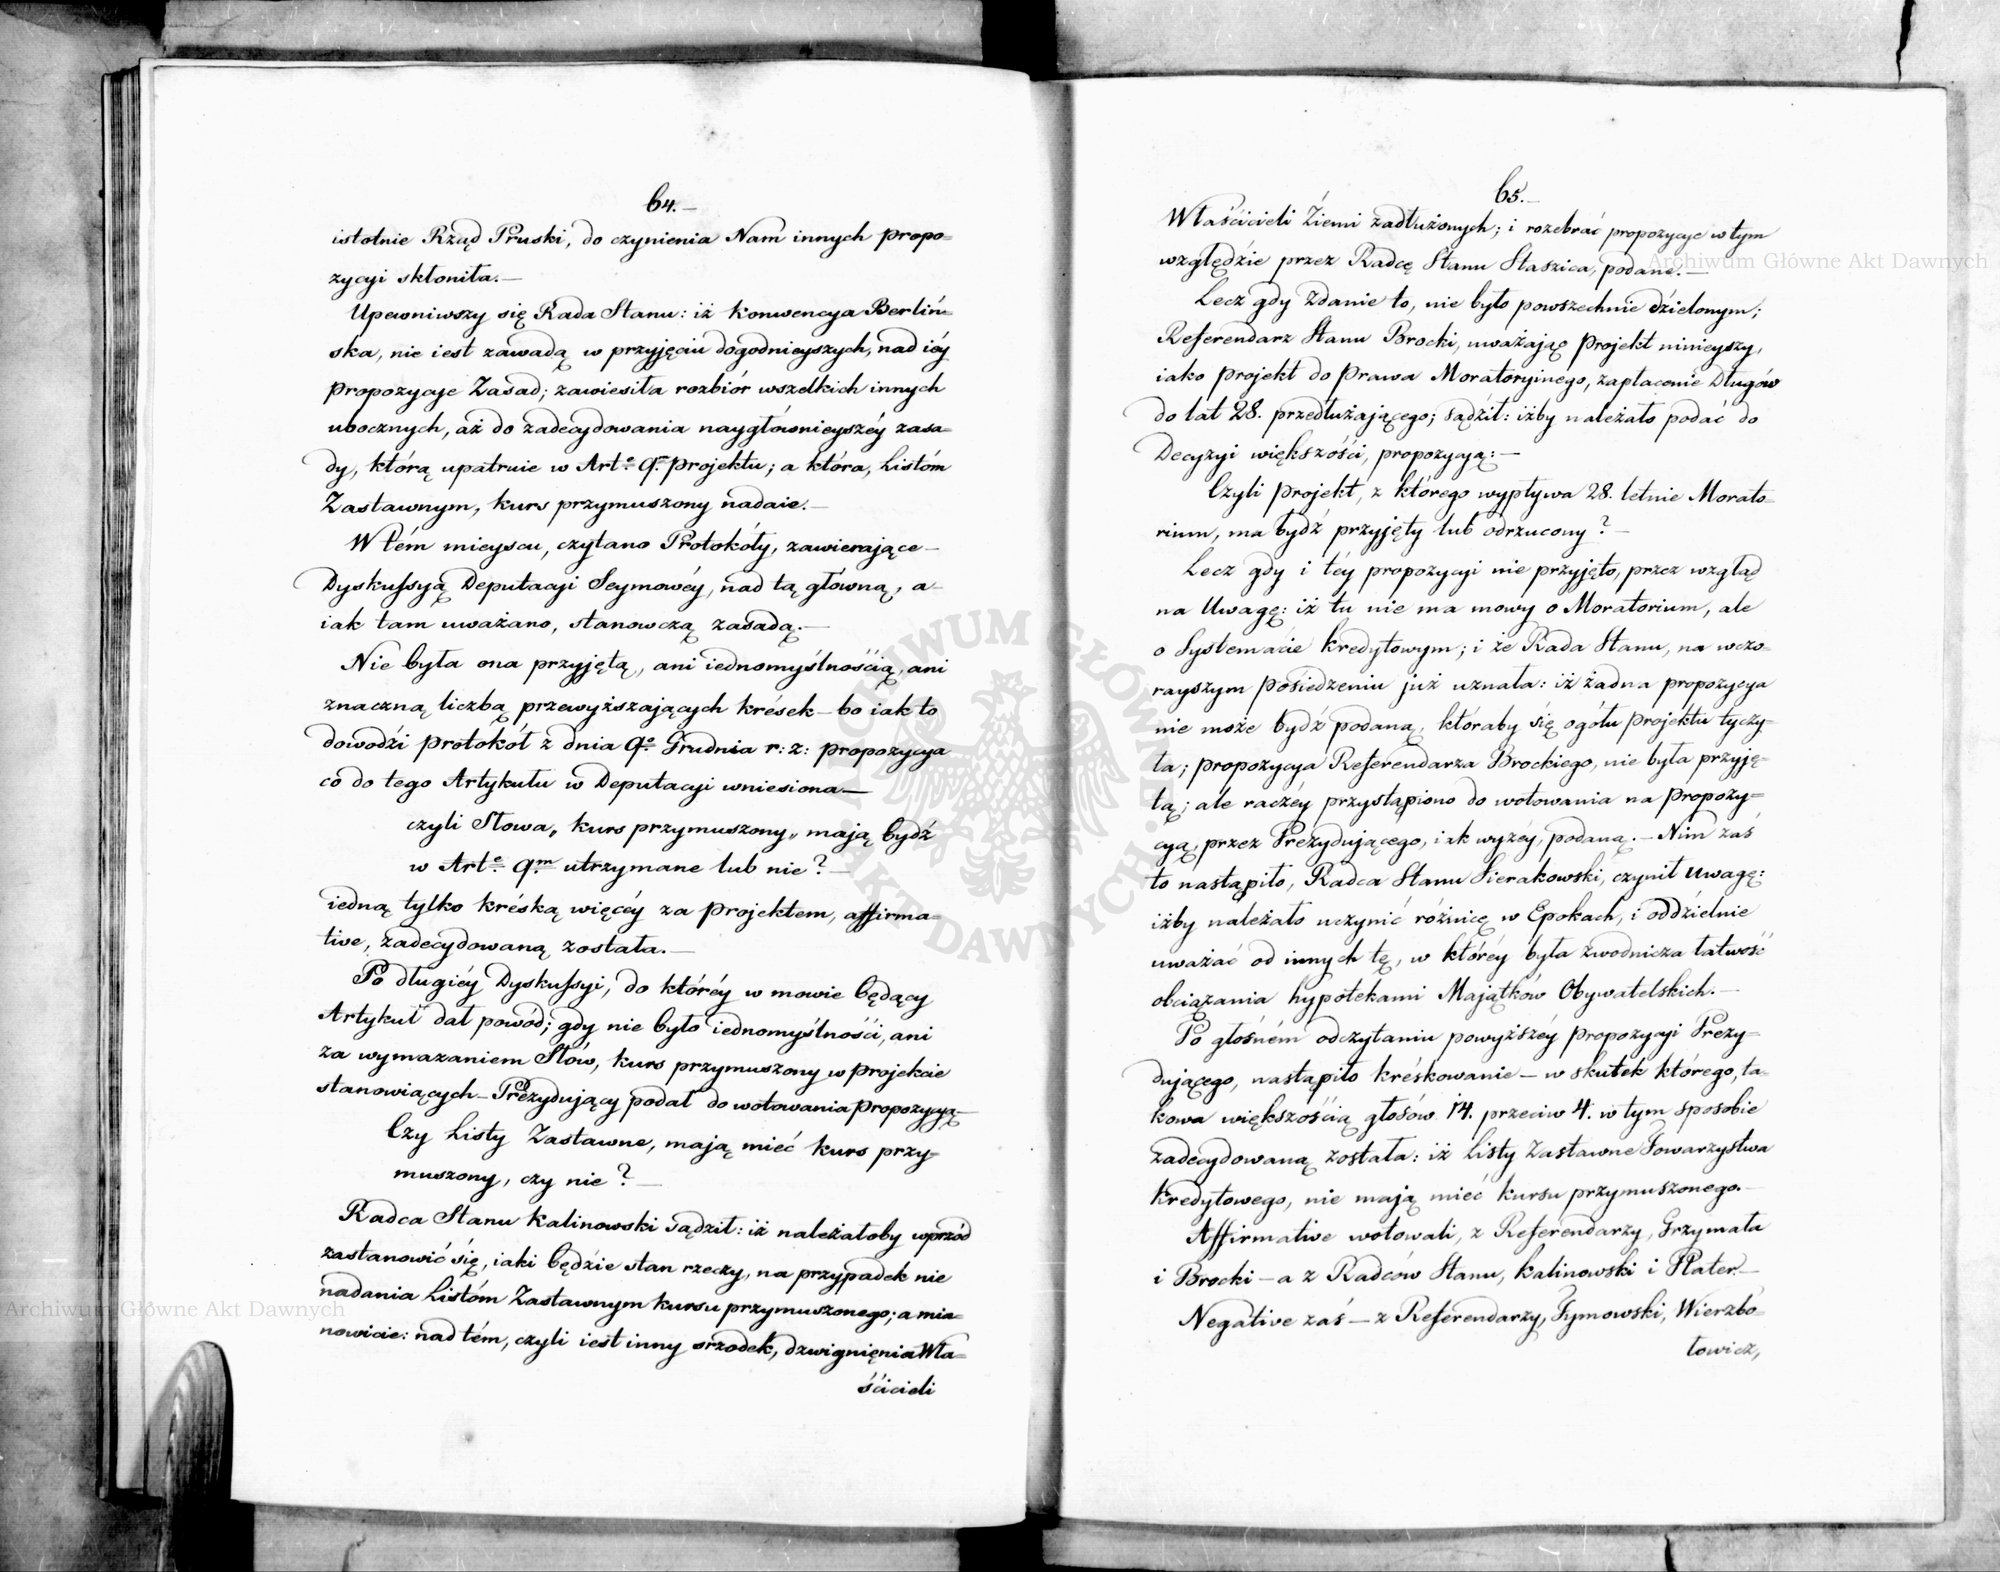 64.—
istotnie Rząd Pruski, do czynienia Nam innych propo=
zycyi skłoniła.—
Upewniwszy się Rada Stanu: iż konwencya Berliń=
ska, nie iest zawadą w przyjęciu dogodnieyszych, nad iéy
propozycye Zasad; zawiesiła rozbiór wszelkich innych
ubocznych, aż do zadecydowania naygłównieyszéy zasa=
dy, którą upatruie w Art.e 9.m projektu; a która, Listóm
Zastawnym, kurs przymuszony nadaie.—
W tém mieyscu, czytano Protokóły, zawierające—
Dyskussyą Deputacyi Seymowéy, nad tą główną, a—
iak tam uważano, stanowczą zasadą.—
Nie była ona przyjętą, ani iednomyślnością, ani
znaczną liczbą przewyższających krések— bo iak to
dowodzi protokół z dnia 9.o Grudnia r: z: propozycya
co do tego Artykułu w Deputacyi wniesiona—
czyli Słowa „kurs przymuszony„ mają bydź
w Art.e 9.m utrzymane lub nie?—
iedną tylko kréską więcéy za projektem, affirma=
tive, zadecydowaną została.—
Po długiéy Dyskussyi, do któréy w mowie będący
Artykuł dał powód; gdy nie było iednomyślności, ani
za wymazaniem Słów, kurs przymuszony w projekcie
stanowiących— Prezydujący podał do wotowania propozycyą—
Czy Listy Zastawne, mają mieć kurs przy=
muszony, czy nie?—
Radca Stanu Kalinowski sądził: iż należałoby wprzód
zastanowić się, iaki będzie stan rzeczy, na przypadek nie
nadania Listóm Zastawnym kursu przymuszonego; a mia=
nowicie: nad tém, czyli iest inny srzodek, dzwignięnia Wła=
ścicieli
65.—
Właścicieli Ziemi zadłużonych; i rozebrać propozycye w tym
względzie przez Radcę Stanu Staszica, podane.—
Lecz gdy Zdanie to, nie było powszechnie dzielonym;
Referendarz Stanu Brocki, uważając projekt ninieyszy,
iako projekt do Prawa Moratoryinego, zapłacenie Długów
do lat 28. przedłużającego; sądził: iżby należało podać do
Decyzyi większości, propozycyą:—
Czyli projekt, z którego wypływa 28. letnie Morato=
rium, ma bydź przyjęty lub odrzucony?—
Lecz gdy i téy propozycyi nie przyjęto, przez wzgląd
na Uwagę: iż tu nie ma mowy o Moratorium, ale
o Systemacie kredytowym; i że Rada Stanu, na wczo=
rayszym posiedzeniu już uznała: iż żadna propozycya
nie może bydź podaną, któraby się ogółu projektu tyczy=
ła; propozycya Referendarza Brockiego, nie była przyję=
tą; ale raczéy przystąpiono do wotowania na propozy=
cyą, przez Prezydującego, iak wyżéy, podaną.— Nim zaś
to nastąpiło, Radca Stanu Sierakowski, czynił Uwagę:
iżby należało uczynić różnicę w Epokach, i oddzielnie
uważać od innych tę, w któréy była zwodnicza łatwość
obciążania hypotekami Majątków Obywatelskich.—
Po głośném odczytaniu powyższéy propozycyi Prezy=
dującego, nastąpiło kréskowanie— w skutek którego, ta=
kowa większością głosów 14. przeciw 4. w tym sposobie
zadecydowaną została: iż Listy Zastawne Towarzystwa
kredytowego, nie mają mieć kursu przymuszonego.—
Affirmative wotowali, z Referendarzy, Grzymała
i Brocki— a z Radców Stanu, Kalinowski i Plater.—
Negative zaś— z Referendarzy, Tymowski, Wierzbo=
łowicz,
Archiwum Główne Akt Dawnych
Archiwum Główne Akt Dawnych
ARCHIWUM GŁÓWNE AKT DAWNYCH